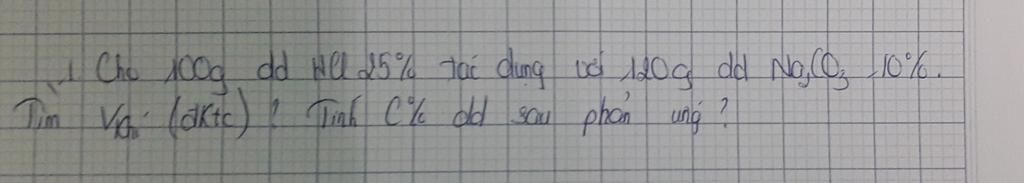 1 Cho 100g dd HCl 25% tác dụng với 120g dd Na₂CO₃ 10%.
Tìm V khí (đktc)? Tính C% dd sau phản ứng?